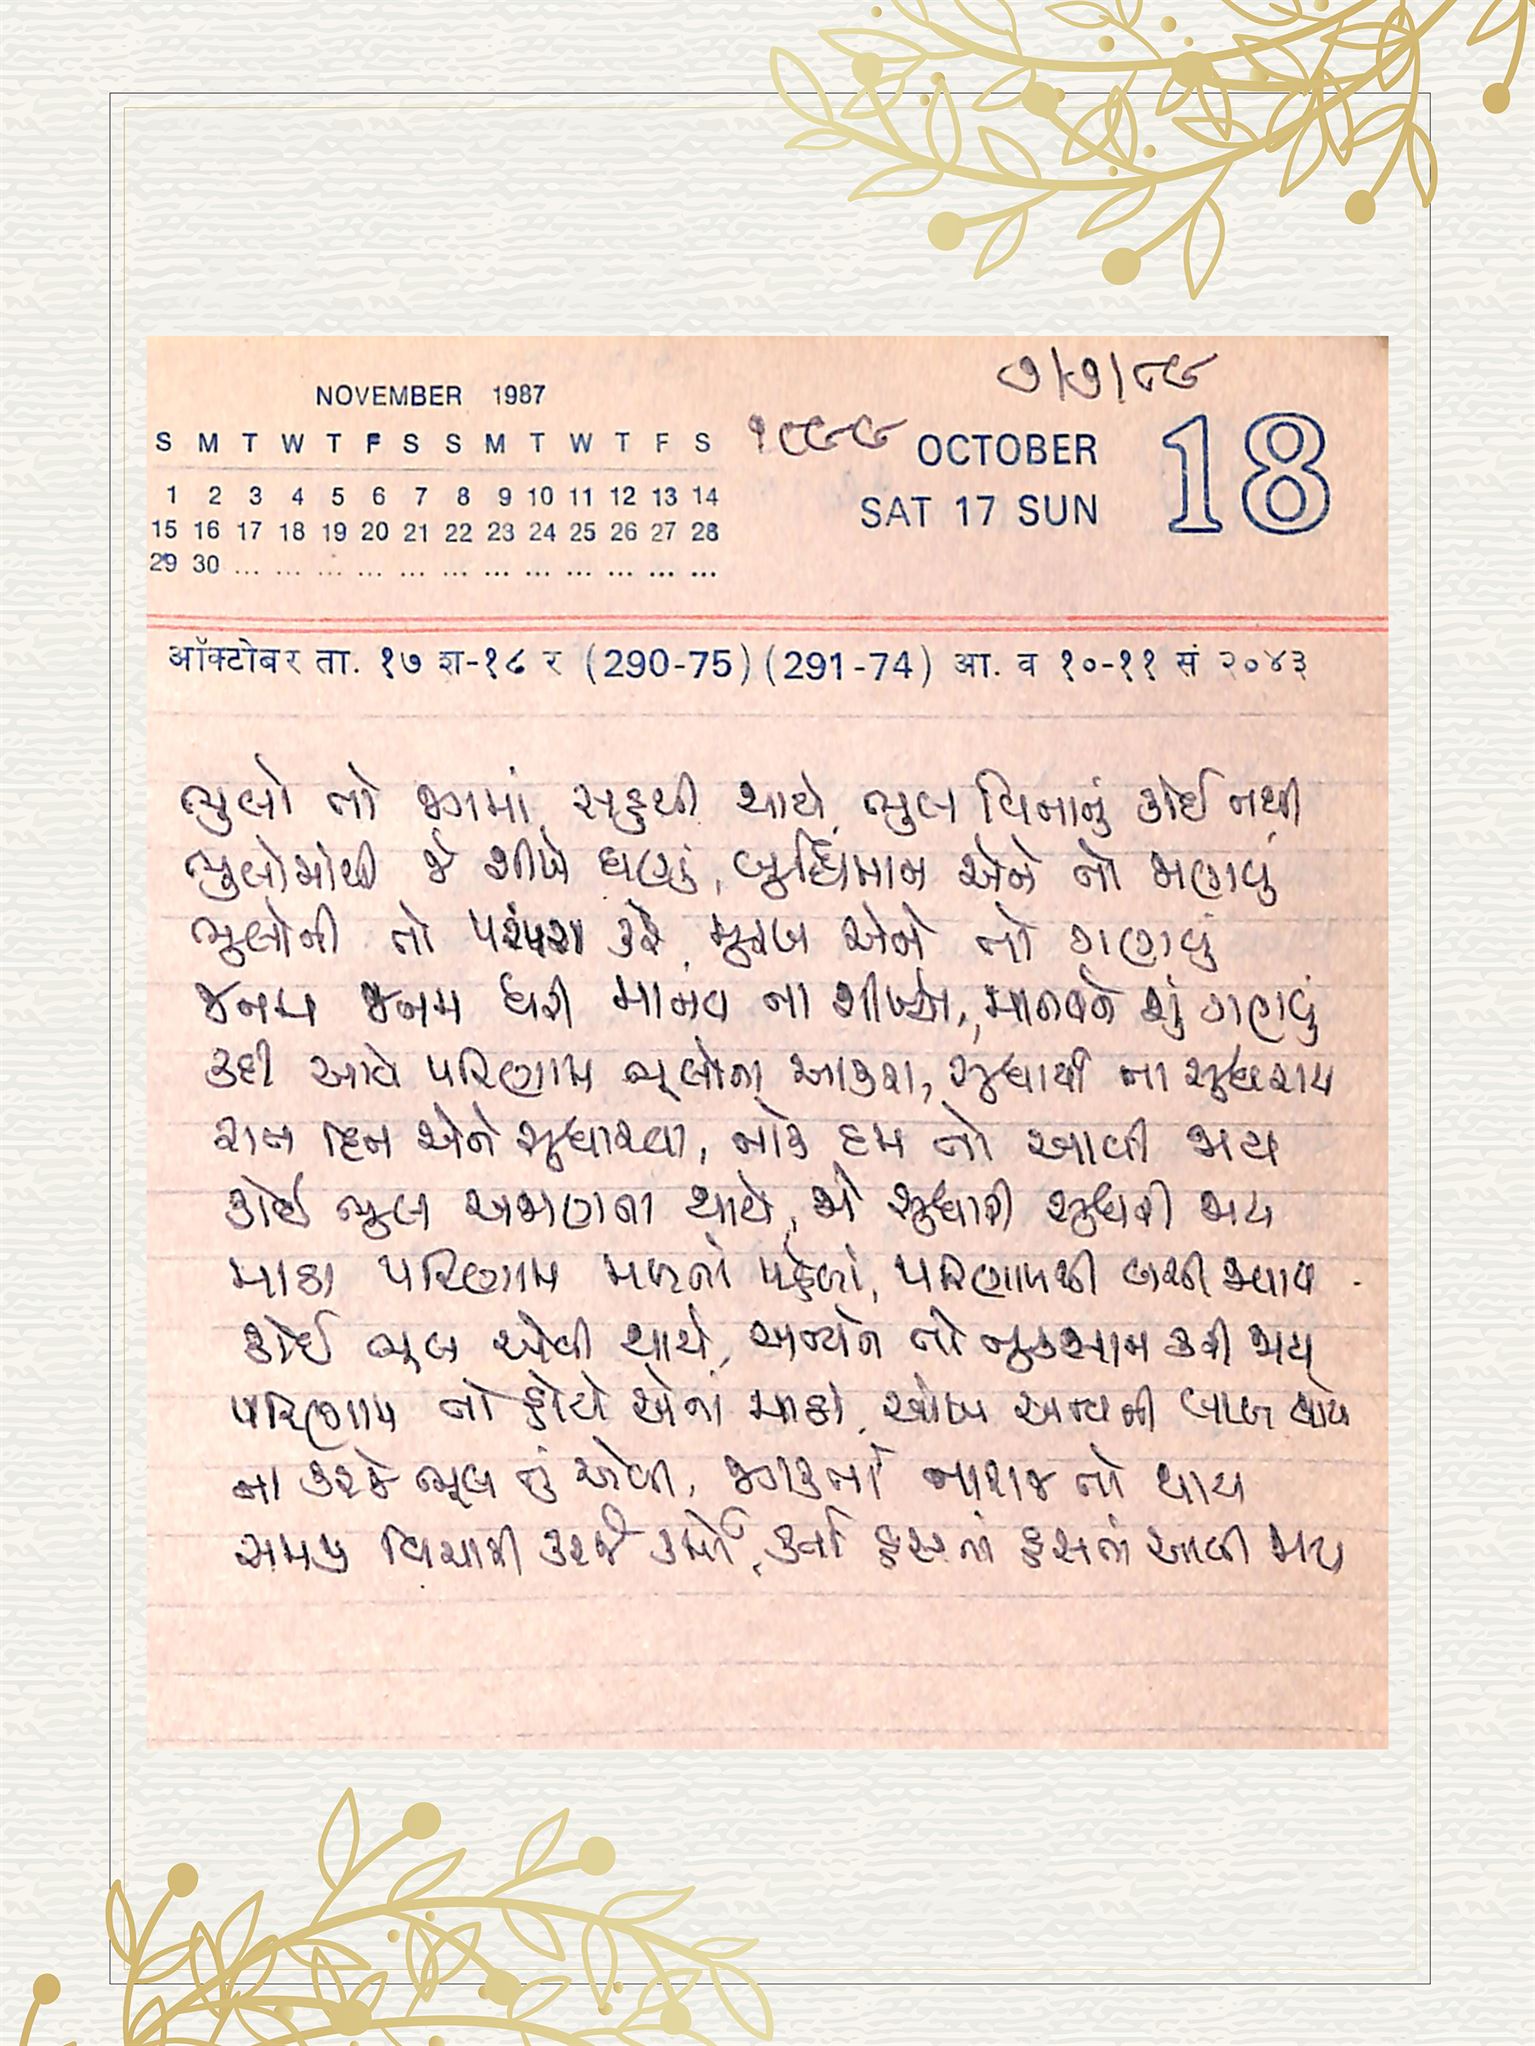 ૭/૫/૮૮
NOVEMBER 1987
S M T W T F S S M T W T F S
1 2 3 4 5 6 7 8 9 10 11 12 13 14
15 16 17 18 19 20 21 22 23 24 25 26 27 28
29 30 ... ... ... ... ... ... ... ... ... ... ... ...
૧૯૮૮ OCTOBER
SAT 17 SUN 18
ऑक्टोबर ता. १७ श-१८ र (290-75) (291-74) आ. व १०-११ सं २०४३
ભુલો તો જગમાં સહુથી થાયે, ભુલ વિનાનું કોઈ નથી
ભુલોમાંથી જે શીખે ઘણું, બુદ્ધિમાન એને તો ગણવું
ભૂલોની તો પરંપરા કરે, મુરખ એને તો ગણવું
જનમ જનમ ધરી માનવ ના શીખ્યો, માનવને શું ગણવું
કદી આવે પરિણામ ભૂલોના આકરા, સુધાર્યા ના સુધરાય
રાત દિન એને સુધારવા, નાકે દમ તો આવી જાય
કોઈ ભુલ અજાણતા થાયે, જો સુધારી સુધરી જાય
માઠા પરિણામ મળતાં પહેલાં, પરિણામથી બચી જવાય
કોઈ ભૂલ એવી થાયે, અન્યને તો નુકસાન કરી જાય
પરિણામ તો હોયે એનાં માઠાં, આંખ અન્યની લાલ થાય
ના કરજે ભૂલ તું એવી, જગકર્તા નારાજ તો થાય
સમજી વિચારી કરજે કર્મો, કર્તા હસતાં હસતાં આવી જાય